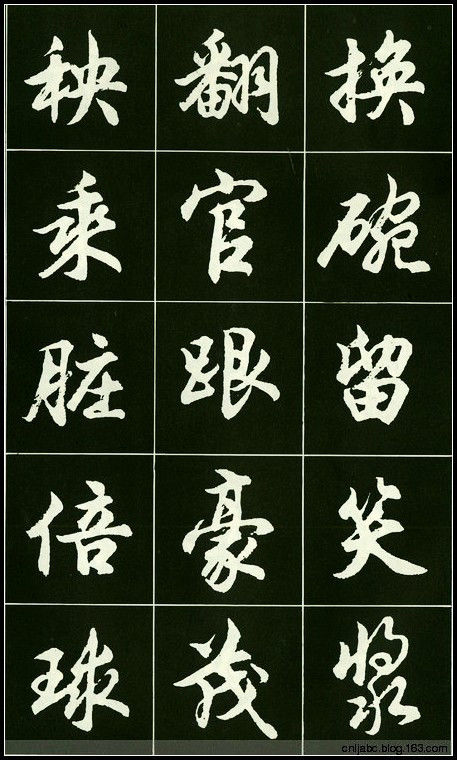 换碗留笑浆
翻官跟豪茂
秧乘脏倍球
cnljabc.blog.163.com